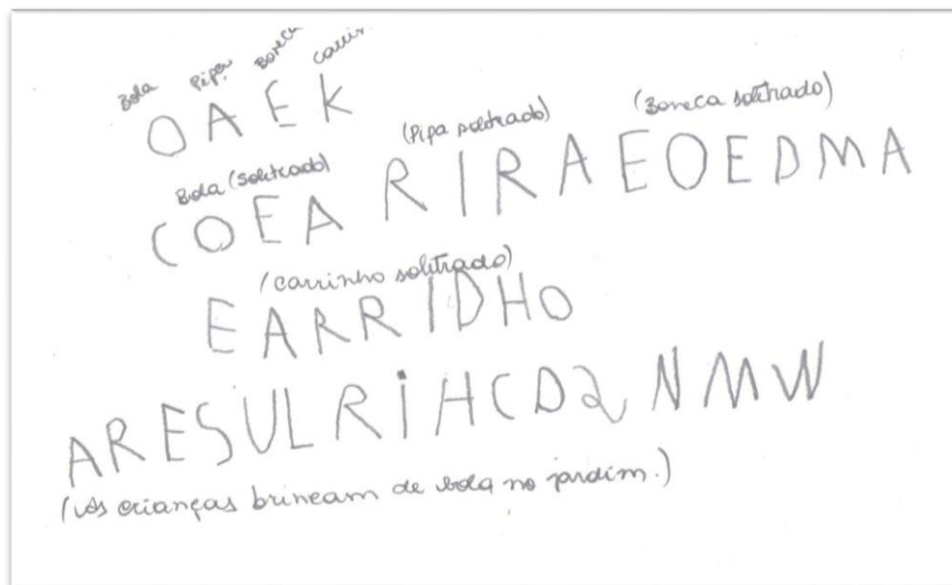 Bola Pipa Boneca Carrin
OAEK
Bola (soletrado) (Pipa soletrado) (Boneca soletrado)
COEA RIRA EOEDMA
(carrinho soletrado)
EARRIDHO
ARESULRIHCD2NMW
(As crianças brincam de bola no jardim.)